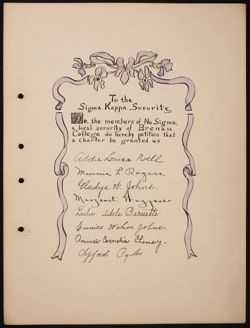 To the
Sigma Kappa Sorority
We, the members of Nu Sigma,
a local sorority of Brenau
College do hereby petition that
a charter be granted us
Addie Louisa Noell
Minnie L Rogers
Gladys W. Johns.
Margaret Waggoner
Lulu Adele Barnette
Eunice Walton Johns.
Anna Cornelia Chaney.
Clifford Pyles